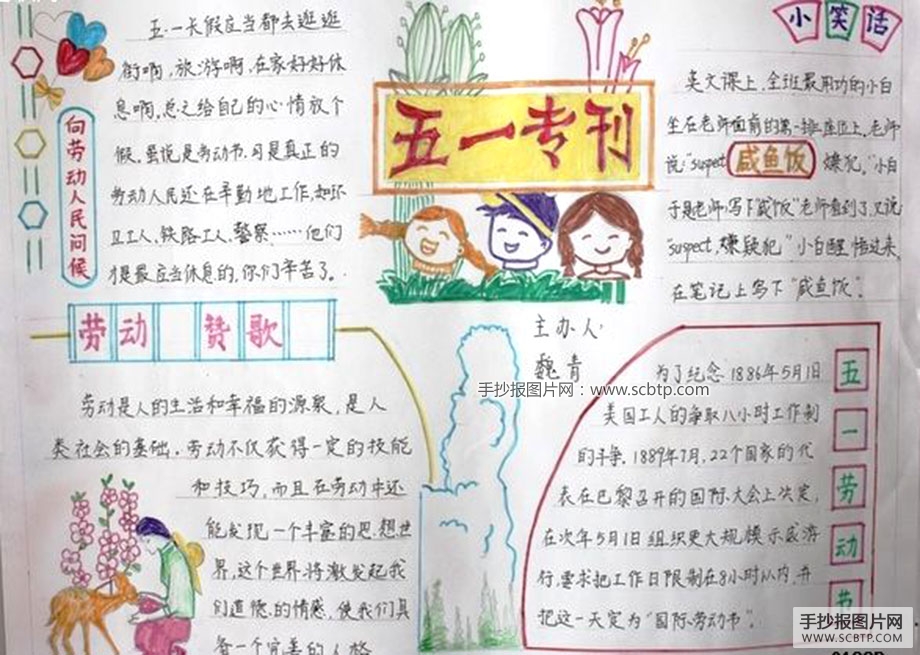 五一专刊
向劳动人民问候
五.一长假应当都去逛逛
街啊,旅游啊,在家好好休
息啊,总之给自己的心情放个
假。虽说是劳动节.可是真正的
劳动人民还在辛勤地工作,如环
卫工人、铁路工人、警察……他们
才是最应当休息的,你们辛苦了。
小笑话
英文课上,全班最用功的小白
坐在老师面前的第一排座位上,老师
说:"suspect 咸鱼饭 嫌犯。"小白
于是老师:写下咸饭"老师看到了,又说:
"suspect,嫌疑犯"小白醒悟过来,
在笔记上写下"咸鱼饭"。
劳动赞歌
劳动是人的生活和幸福的源泉,是人
类社会的基础,劳动不仅获得一定的技能
和技巧,而且在劳动中还
能发现一个丰富的思想世
界,这个世界将激发起我
们道德的情感,使我们具
备一个完美的人格
主办人:
魏青
手抄报图片网:www.scbtp.com
五一劳动节
为了纪念1886年5月1日
美国工人的争取八小时工作制
的斗争,1889年7月,22个国家的代
表在巴黎召开的国际大会上决定,
在次年5月1日组织更大规模示威游
行,要求把工作日限制在8小时以内,并
把这一天定为"国际劳动节"。
手抄报图片网
WWW.SCBTP.COM